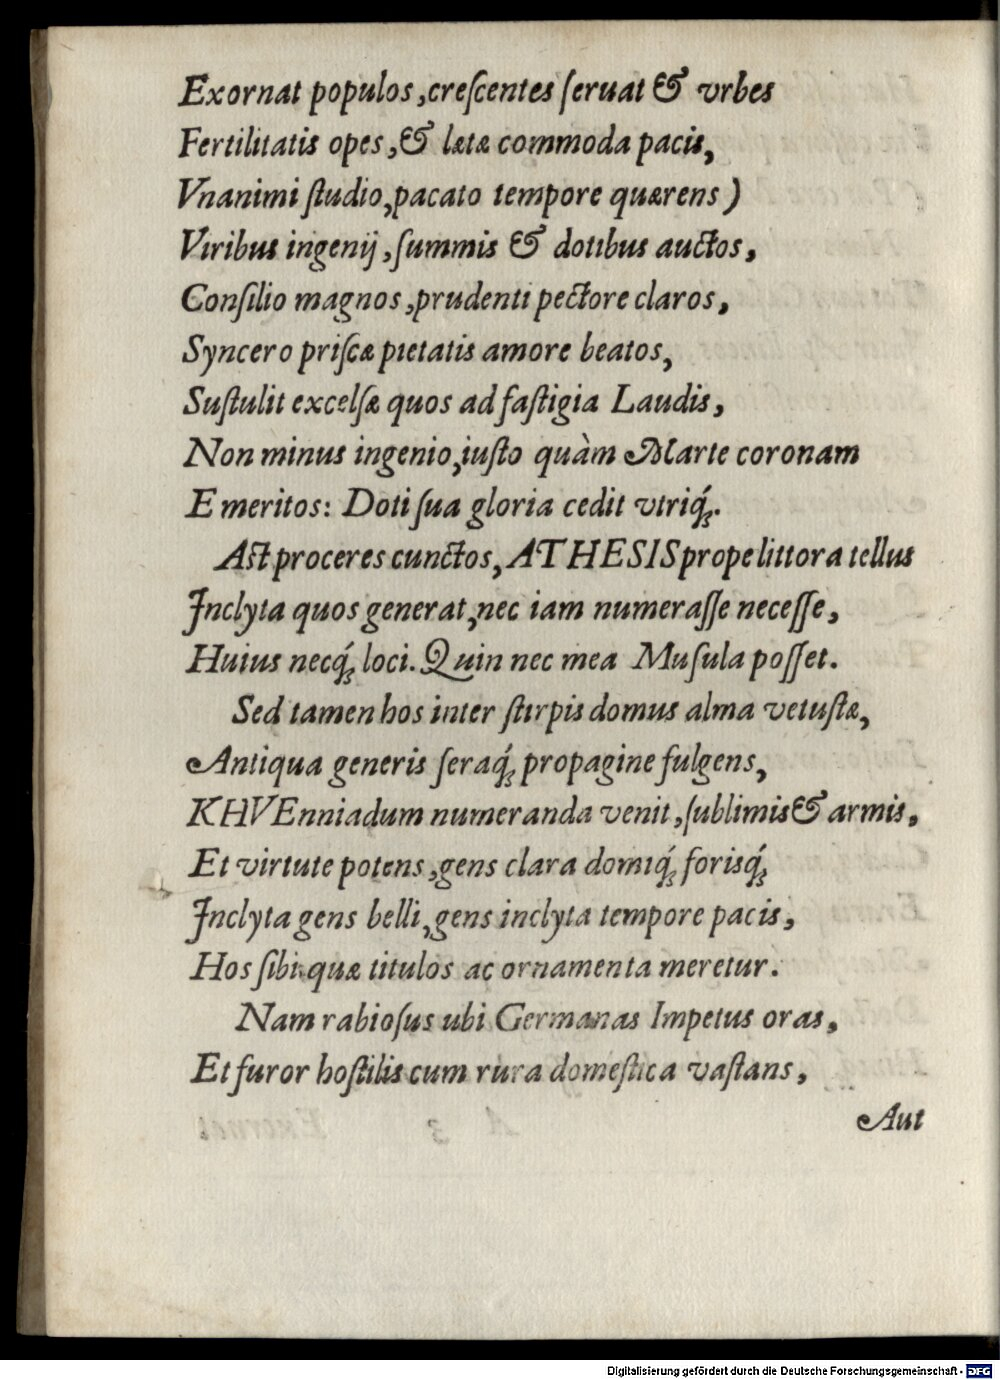 Exornat populos, creſcentes ſeruat & vrbes
Fertilitatis opes, & lætæ commoda pacis,
Vnanimi ſtudio, pacato tempore quærens)
Viribus ingenij, ſummis & dotibus auctos,
Conſilio magnos, prudenti pectore claros,
Syncero priſcæ pietatis amore beatos,
Suſtulit excelſæ quos ad faſtigia Laudis,
Non minus ingenio, iuſto quàm Marte coronam
Emeritos: Doti ſua gloria cedit vtriq́ꝫ.
Aſt proceres cunctos, ATHESIS prope littora tellus
Inclyta quos generat, nec iam numeraſſe neceſſe,
Huius necq́ꝫ loci. Quin nec mea Muſula poſſet.
Sed tamen hos inter ſtirpis domus alma vetuſtæ,
Antiqua generis ſeraq́ꝫ propagine fulgens,
KHVEnniadum numeranda venit, ſublimis & armis,
Et virtute potens, gens clara domiq́ꝫ forisq́ꝫ
Inclyta gens belli, gens inclyta tempore pacis,
Hos ſibi quæ titulos ac ornamenta meretur.
Nam rabioſus ubi Germanas Impetus oras,
Et furor hoſtilis cum rura domeſtica vaſtans,
Aut
Digitalisierung gefördert durch die Deutsche Forschungsgemeinschaft - DFG